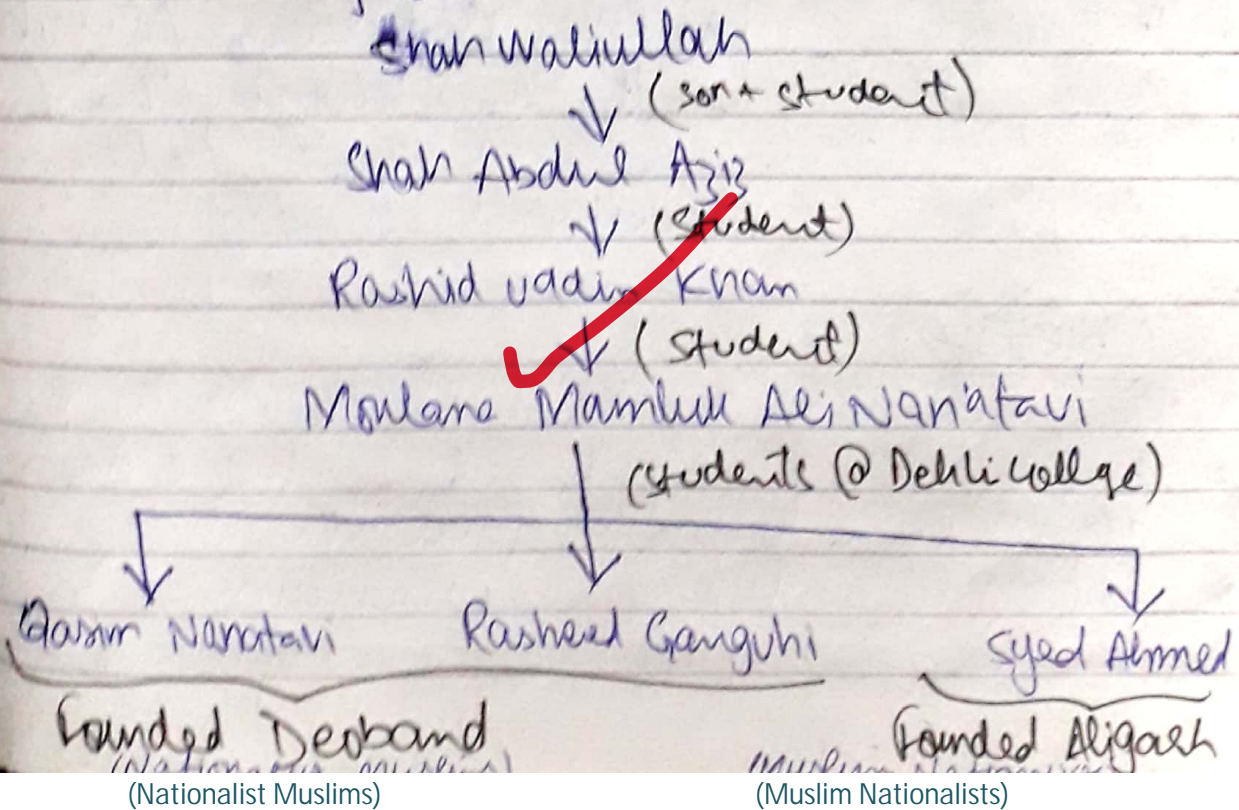 Shah Waliullah
(son + student)
Shah Abdul Aziz
(Student)
Rashid uddin Khan
(Student)
Moulana Mamluk Ali Nan'atavi
(students @ Dehli College)
Qasim Nanatavi Rasheed Ganguhi Syed Ahmed
Founded Deoband Founded Aligarh
(Nationalist Muslims) (Muslim Nationalists)